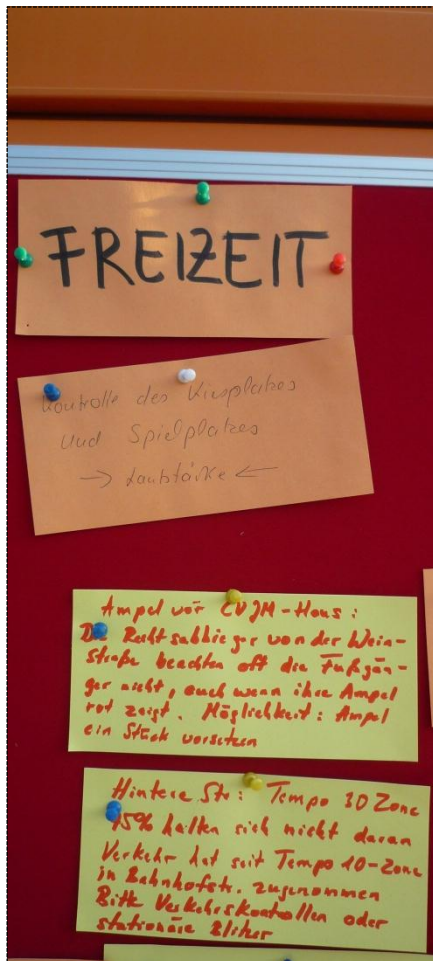 FREIZEIT
Kontrolle des Kiesplatzes
und Spielplatzes
→ Lautstärke ←
Ampel vor CVJM-Haus:
Die Rechtsabbieger von der Wein-
straße beachten oft die Fußgän-
ger nicht, auch wenn ihre Ampel
rot zeigt. Möglichkeit: Ampel
ein Stück vorsetzen
Hintere Str: Tempo 30 Zone
95% halten sich nicht daran
Verkehr hat seit Tempo 10-Zone
in Bahnhofstr. zugenommen
Bitte Verkehrskontrollen oder
stationäre Blitzer